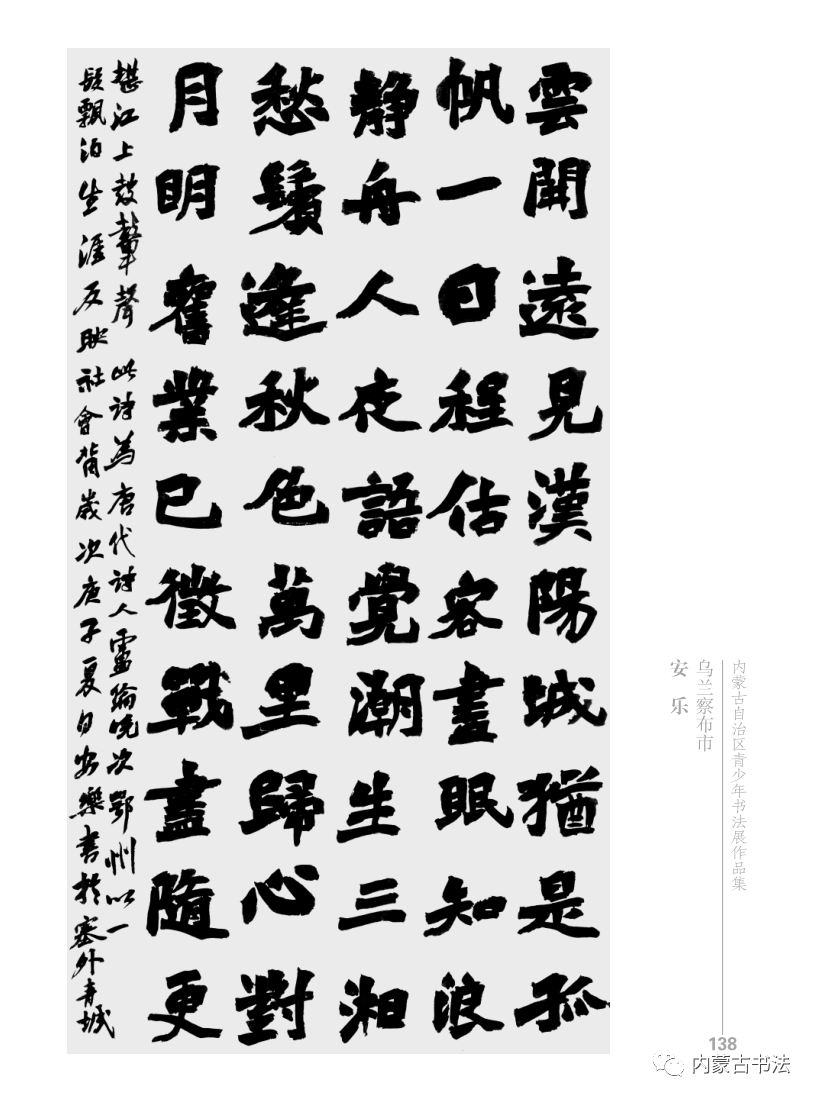 雲開遠見漢陽城猶是孤
帆一日程估客晝眠知浪
静舟人夜語覺潮生三湘
愁鬢逢秋色萬里歸心對
月明舊業已徵戰盡隨更
堪江上鼓鼙聲 此詩為唐代詩人盧綸晚次鄂州以一
段飄泊生涯反映社會背歲次庚子夏日安樂書於塞外青城
内蒙古自治区青少年书法展作品集
乌兰察布市
安乐
138
内蒙古书法